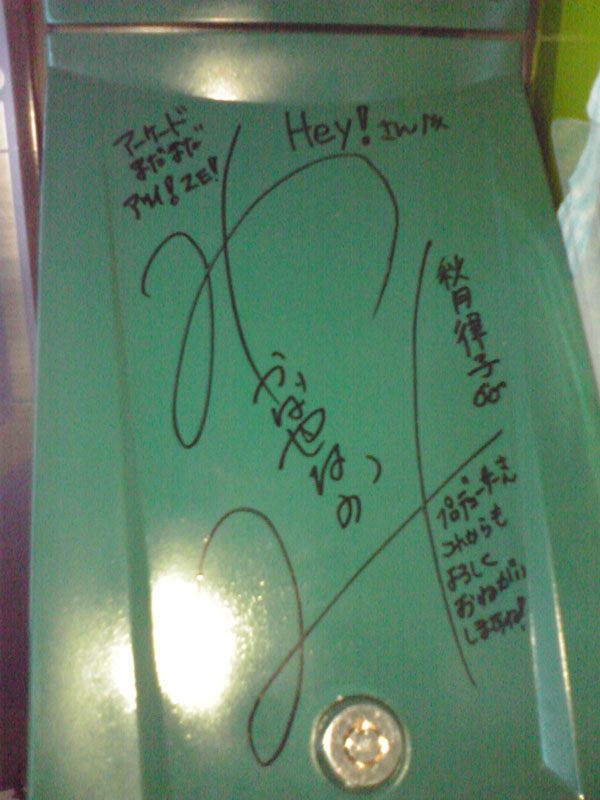 アーケード
まだまだ
アツイ!ZE!
Hey! さん江
秋月律子
プロデューサーさん
これからも
よろしく
おねがい
しますね!